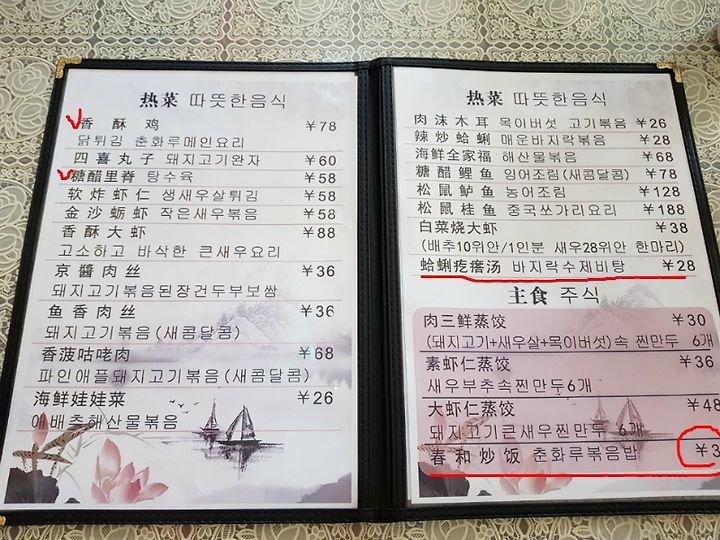 热菜 따뜻한음식
香酥鸡 ¥78
닭튀김 춘화루메인요리
四喜丸子 돼지고기완자 ¥60
糖醋里脊 탕수육 ¥58
软炸虾仁 생새우살튀김 ¥58
金沙蛎虾 작은새우볶음 ¥58
香酥大虾 ¥88
고소하고 바삭한 큰새우요리
京醬肉丝 ¥36
돼지고기볶음된장건두부보쌈
鱼香肉丝 ¥36
돼지고기볶음(새콤달콤)
香菠咕咾肉 ¥68
파인애플돼지고기볶음(새콤달콤)
海鲜娃娃菜 ¥26
애배추해산물볶음
热菜 따뜻한음식
肉沫木耳 목이버섯 고기볶음 ¥26
辣炒蛤蜊 매운바지락볶음 ¥28
海鲜全家福 해산물볶음 ¥68
糖醋鲤鱼 잉어조림(새콤달콤) ¥78
松鼠鲈鱼 농어조림 ¥128
松鼠桂鱼 중국쏘가리요리 ¥188
白菜烧大虾 ¥38
(배추10위안/1인분 새우28위안 한마리)
蛤蜊疙瘩汤 바지락수제비탕 ¥28
主食 주식
肉三鲜蒸饺 ¥30
(돼지고기+새우살+목이버섯)속 찐만두 6개
素虾仁蒸饺 ¥36
새우부추속찐만두6개
大虾仁蒸饺 ¥48
돼지고기큰새우찐만두 6개
春和炒饭 춘화루볶음밥 ¥3